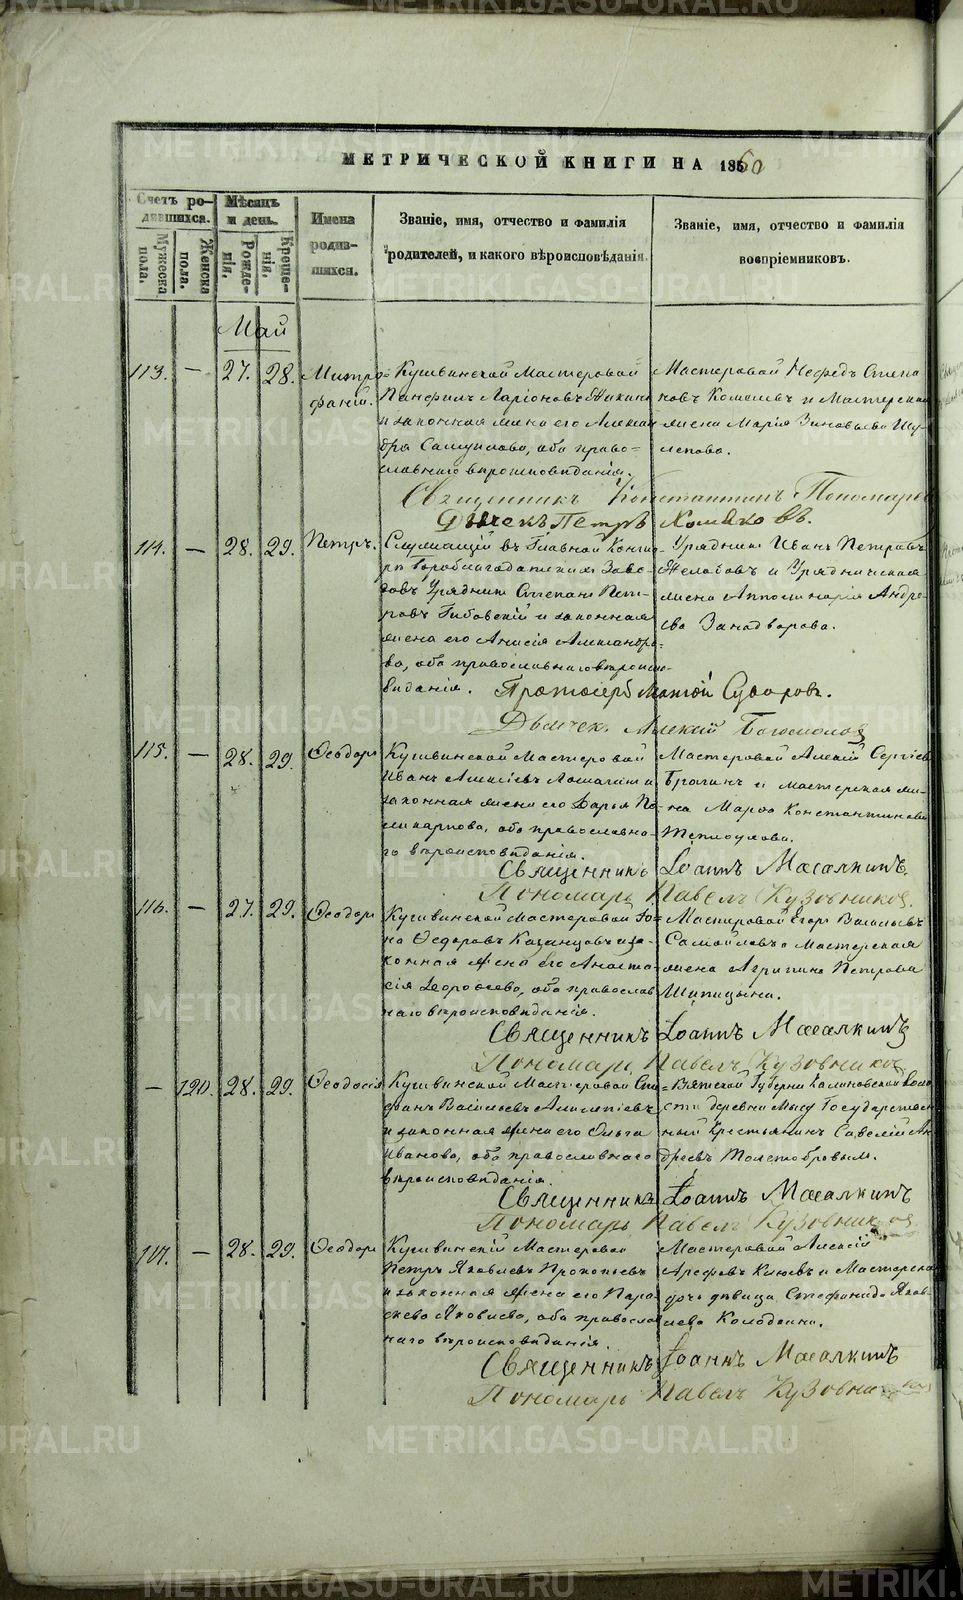 МЕТРИЧЕСКОЙ КНИГИ НА 1860
Счетъ родившихся.
Мужеска пола.
Женска пола.
Мѣсяцъ и день.
Рожденія.
Крещенія.
Имена родившихся.
Званіе, имя, отчество и фамилія
родителей, и какого вѣроисповѣданія.
Званіе, имя, отчество и фамилія
воспріемниковъ.
Май
113. — 27. 28. Митрофаній.
Кушвинской Мастеровой
Панфилъ Ларіоновъ
и законная жена его Александра Самуилова, оба православнаго вѣроисповѣданія.
Мастеровой Нефедъ Степановъ и Мастерская
жена Марія Зиновьева
Священникъ Константинъ Пономаревъ
Дьячекъ Петръ Хомяковъ.
114. — 28. 29. Петръ.
Служащій въ Главной Конторѣ Гороблагодатскихъ Заводовъ Урядникъ Степанъ Петровъ и законная
жена его Анисія Александрова, оба православнаго вѣроисповѣданія.
Урядникъ Иванъ Петровъ
и Урядническая
жена Апполинарія Андреева Занадворова.
Протоіерей Суворовъ.
Дьячекъ Алексій Богомолов
115. — 28. 29. Ѳеодоръ
Кушвинской Мастеровой
Иванъ Алексіевъ и
законная жена его Дарья Поликарпова, оба православнаго вѣроисповѣданія.
Мастеровой Алексій Сергіевъ
и мастерская жена Марѳа Константинова
Теплоухова.
Священникъ Іоаннъ Масалкинъ.
Пономарь Павелъ Кузовников.
116. — 27. 29. Ѳеодоръ
Кушвинской Мастеровой
Ѳедоровъ Казанцовъ и законная жена его Анастасія Дороѳеева, оба православнаго вѣроисповѣданія.
Мастеровой Егоръ Васильевъ
Самойловъ и Мастерская
жена Агрипина Петрова
Шипицына.
Священникъ Іоаннъ Масалкинъ
Пономарь Павелъ Кузовников
— 120. 28. 29. Ѳеодосія
Кушвинской Мастеровой Стефанъ Васильевъ
и законная жена его Ольга
Иванова, оба православнаго
вѣроисповѣданія.
Вятской Губерніи Волости деревни Государственный Крестьянинъ Савелій Андреевъ
Священникъ Іоаннъ Масалкинъ
Пономарь Павелъ Кузовников
117. — 28. 29. Ѳеодоръ
Кушвинскій Мастеровой
Петръ Яковлевъ Прокопьевъ
и законная жена его Параскева Яковлева, оба православнаго вѣроисповѣданія.
Мастеровой Алексій
Арефовъ Клюевъ и Мастерская
дочь дѣвица Стефанида Яковлева
Священникъ Іоаннъ Масалкинъ
Пономарь Павелъ Кузовников
METRIKI.GASO-URAL.RU